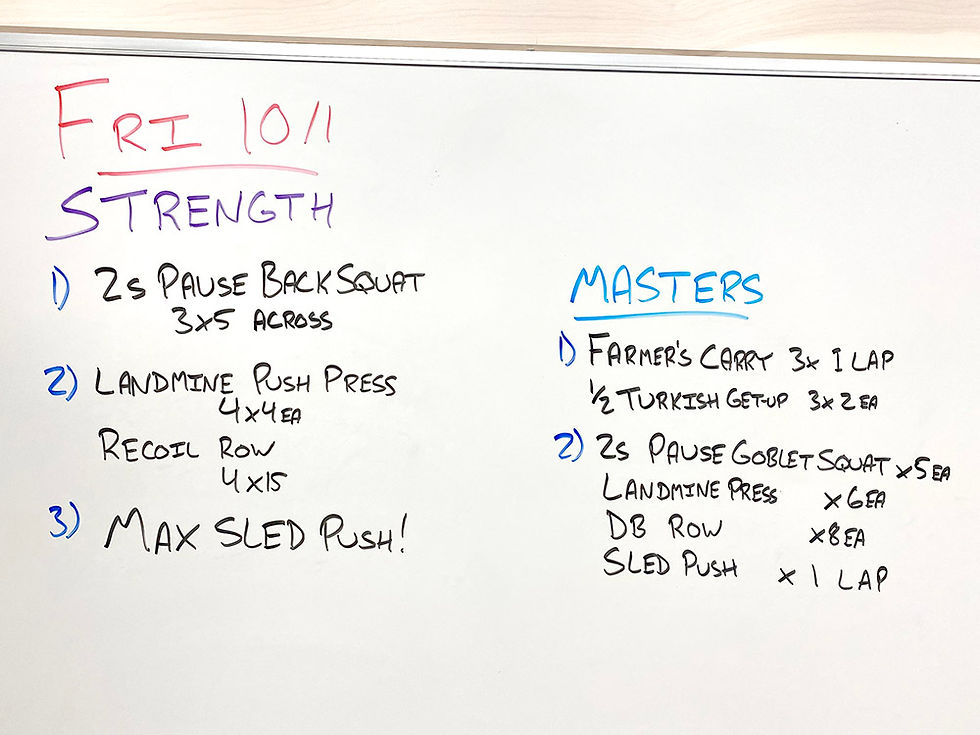 FRI 10/1
STRENGTH
1) 2s PAUSE BACK SQUAT
3x5 ACROSS
2) LANDMINE PUSH PRESS
4x4 EA
RECOIL ROW
4x15
3) MAX SLED PUSH!
MASTERS
1) FARMER'S CARRY 3x 1 LAP
1/2 TURKISH GET-UP 3x2 EA
2) 2s PAUSE GOBLET SQUAT x5 EA
LANDMINE PRESS x6 EA
DB ROW x8 EA
SLED PUSH x 1 LAP